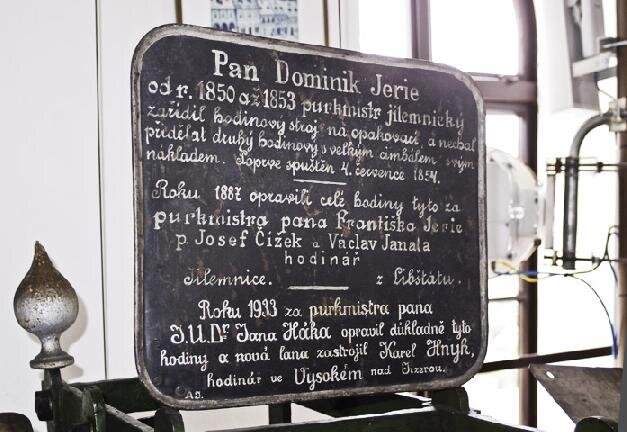 Pan Dominik Jerie
od r. 1850 až 1853 purkmistr jilemnický
zařídil hodinový stroj na opakovací, a nechal
předělat druhý hodinový s velkým cimbálem svým
nákladem. Poprve spuštěn 4. července 1854.
Roku 1887 opravili celé hodiny tyto za
purkmistra pana Františka Jerie
p. Josef Čížek a Václav Janata
hodinář
Jilemnice. z Libštátu.
Roku 1933 za purkmistra pana
J.U.Dr Jana Háka opravil důkladně tyto
hodiny a nová lana zastrojil Karel Hnyk,
hodinář ve Vysokém nad Jizerou.